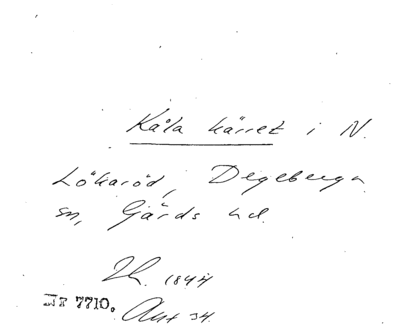 Kåla kärret i N.
Lökaröd, Degeberga
sn, Gärds hd.
1844
Nr 7710. Akt 34.